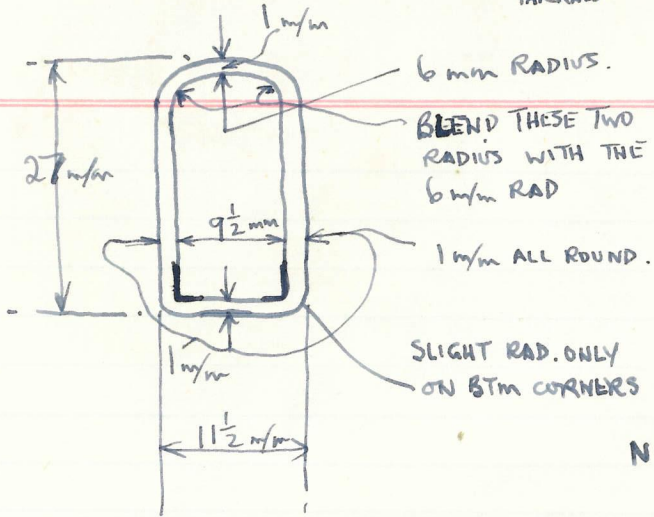 1 m/m
6 mm RADIUS.
BLEND THESE TWO
RADIUS WITH THE
6 m/m RAD
27 m/m
9 1/2 mm
1 m/m ALL ROUND.
1 m/m
SLIGHT RAD. ONLY
ON BTM CORNERS
11 1/2 m/m
N